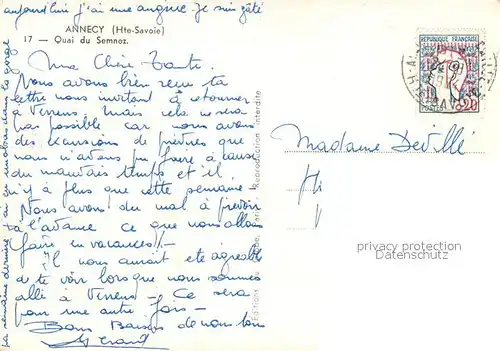 aujourd'hui j'ai une angine. je suis gâté
ANNECY (Hte-Savoie)
17 — Quai du Semnoz.
Ma Chère Tante.
Nous avons bien reçu ta
lettre nous invitant à retourner
à mais cela ne sera
pas possible. car nous avons
des excursions de prévues que
nous n'avons pu faire à cause
du mauvais temps et il
n'y a plus que cette semaine -
Nous avons du mal à prévoir
à l'avance ce que nous allons
faire en vacances! -
Il nous aurait été agréable
de te voir lorsque nous sommes
allé à Ce sera
pour une autre fois -
Bons Baisers de nous tous
Gérard
la semaine dernière j'ai eu dans la gorge
Reproduction interdite
REPUBLIQUE FRANÇAISE
POSTES
0,20
Madame Devillé
privacy protection
Datenschutz